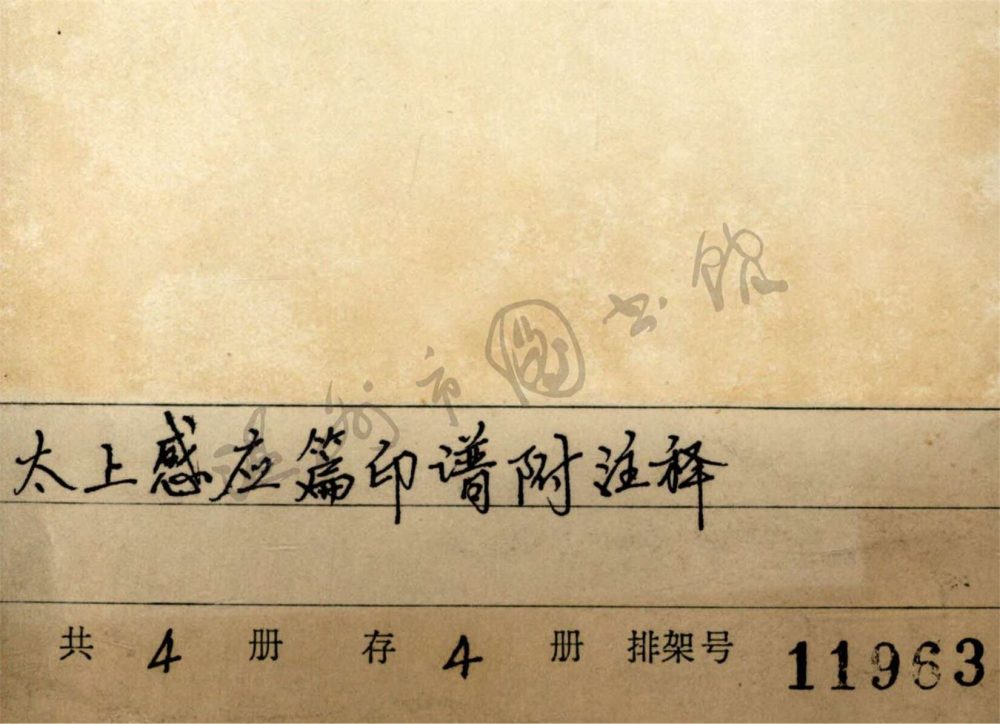 市图书馆
太上感应篇印谱附注释
共 4 册 存 4 册 排架号 11963